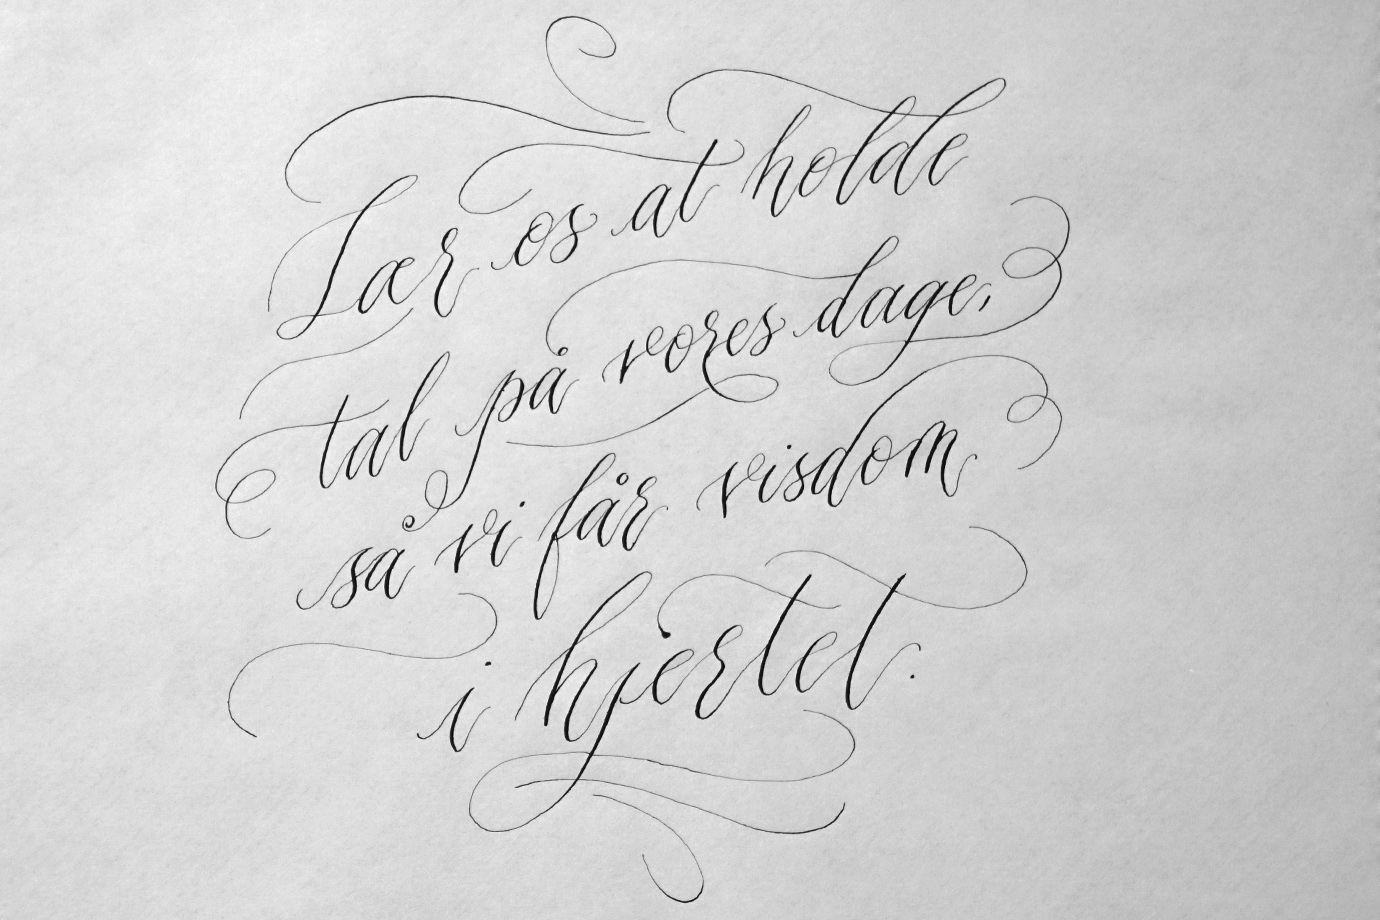 Lær os at holde
tal på vores dage,
så vi får visdom
i hjertet.